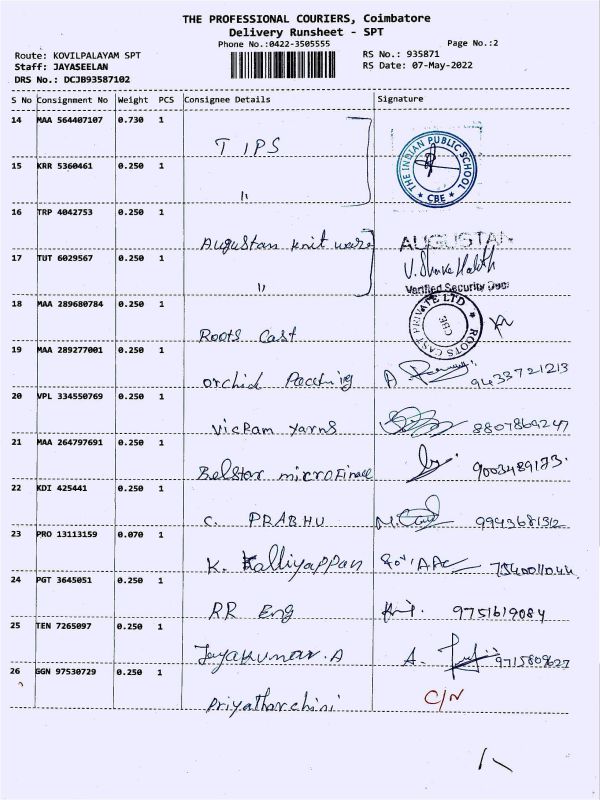 THE PROFESSIONAL COURIERS, Coimbatore
Delivery Runsheet - SPT
Phone No.:0422-3505555
Page No.:2
Route: KOVILPALAYAM SPT
RS No.: 935871
Staff: JAYASEELAN
RS Date: 07-May-2022
DRS No.: DCJB93587102
S No Consignment No Weight PCS Consignee Details Signature
14 MAA 564407107 0.730 1
TIPS
THE INDIAN PUBLIC SCHOOL
CBE
15 KRR 5360461 0.250 1
"
16 TRP 4042753 0.250 1
Augustan knit ware AUGUSTAN
17 TUT 6029567 0.250 1
"
Verified Security Dept
18 MAA 289680784 0.250 1
Roots Cast
ROOTS CAST PRIVATE LTD
CBE
19 MAA 289277001 0.250 1
orchid A. 9433721213
20 VPL 334550769 0.250 1
Vickram yarns 8807869247
21 MAA 264797691 0.250 1
Belstar microFinace 9003489173.
22 KDI 425441 0.250 1
C. PRABHU 9943681312
23 PRO 13113159 0.070 1
K. Kalliyappan
24 PGT 3645051 0.250 1
RR Eng 9751619084
25 TEN 7265097 0.250 1
Jayakumar.A A. 9715809627
26 GGN 97530729 0.250 1
Priyatharchini C/N